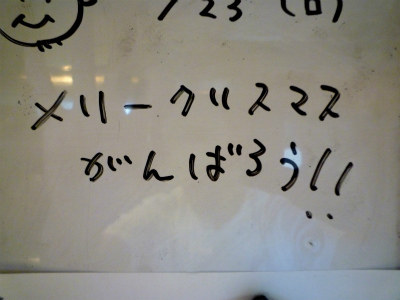 /23(日)
メリークリスマス
がんばろう!!